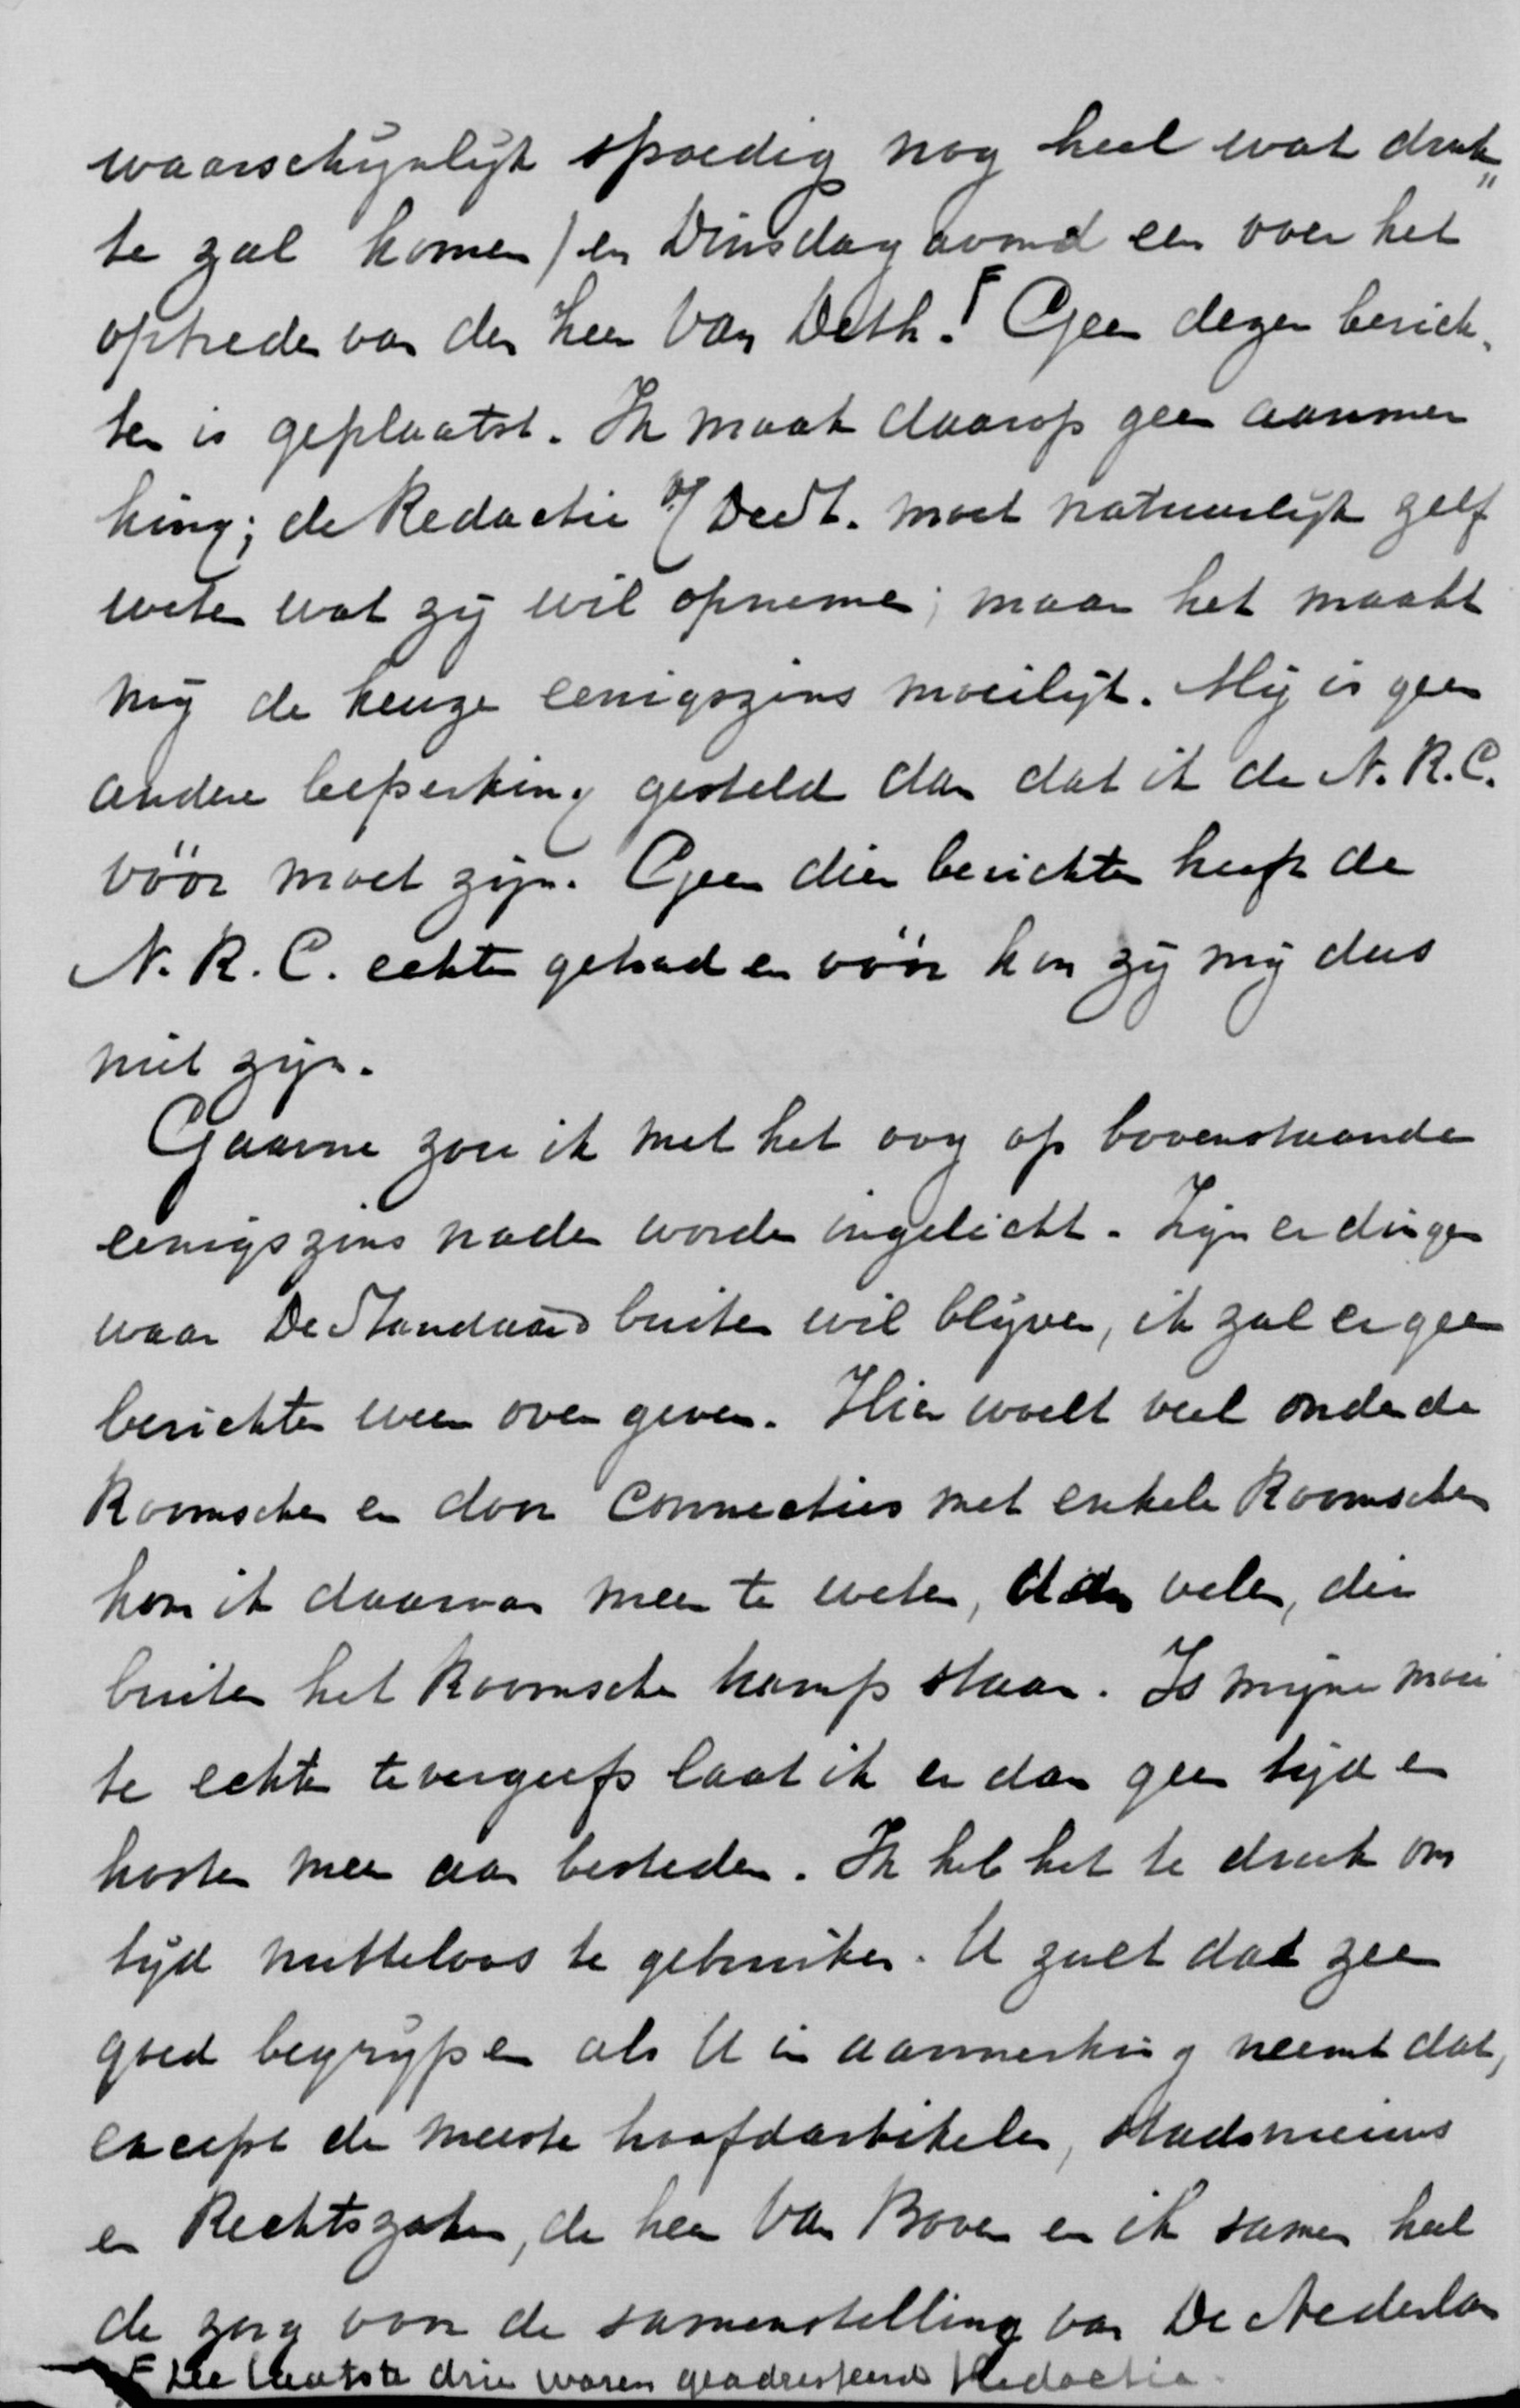 waarschijnlijk spoedig nog heel wat druk„
te zal komen) en Dinsdagavond een over het
optreden van den heer Van Deth. F Geen dezer berich„
ten is geplaatst. Ik maak daarop geen aanmer
king; de Redactie v/ De St. moet natuurlijk zelf
weten wat zij wil opnemen; maar het maakt
mij de keuze eenigszins moeilijk. Mij is geen
andere beperking gesteld dan dat ik de N. R. C.
vóór moet zijn. Geen dier berichten heeft de
N. R. C. echter gehad en vóór kon zij mij dus
niet zijn.
Gaarne zou ik met het oog op bovenstaande
eenigszins nader worden ingelicht. Zijn er dingen
waar De Standaard buiten wil blijven, ik zal er geen
berichten meer over geven. Hier woelt veel onder de
Roomschen en door connecties met enkele Roomschen
kom ik daarvan meer te weten, dan velen, die
buiten het Roomsche kamp staan. Is mijne moei
te echter tevergeefs laat ik er dan geen tijd en
kosten meer aan besteden. Ik heb het te druk om
tijd nutteloos te gebruiken. U zult dat zeer
goed begrijpen als U in aanmerking neemt dat,
except de meeste hoofdartikelen, stadsnieuws
en Rechtszaken, de heer Van Boven en ik samen heel
de zorg voor de samenstelling van De Nederlan
F De laatste drie waren geadresseerd Redactie.